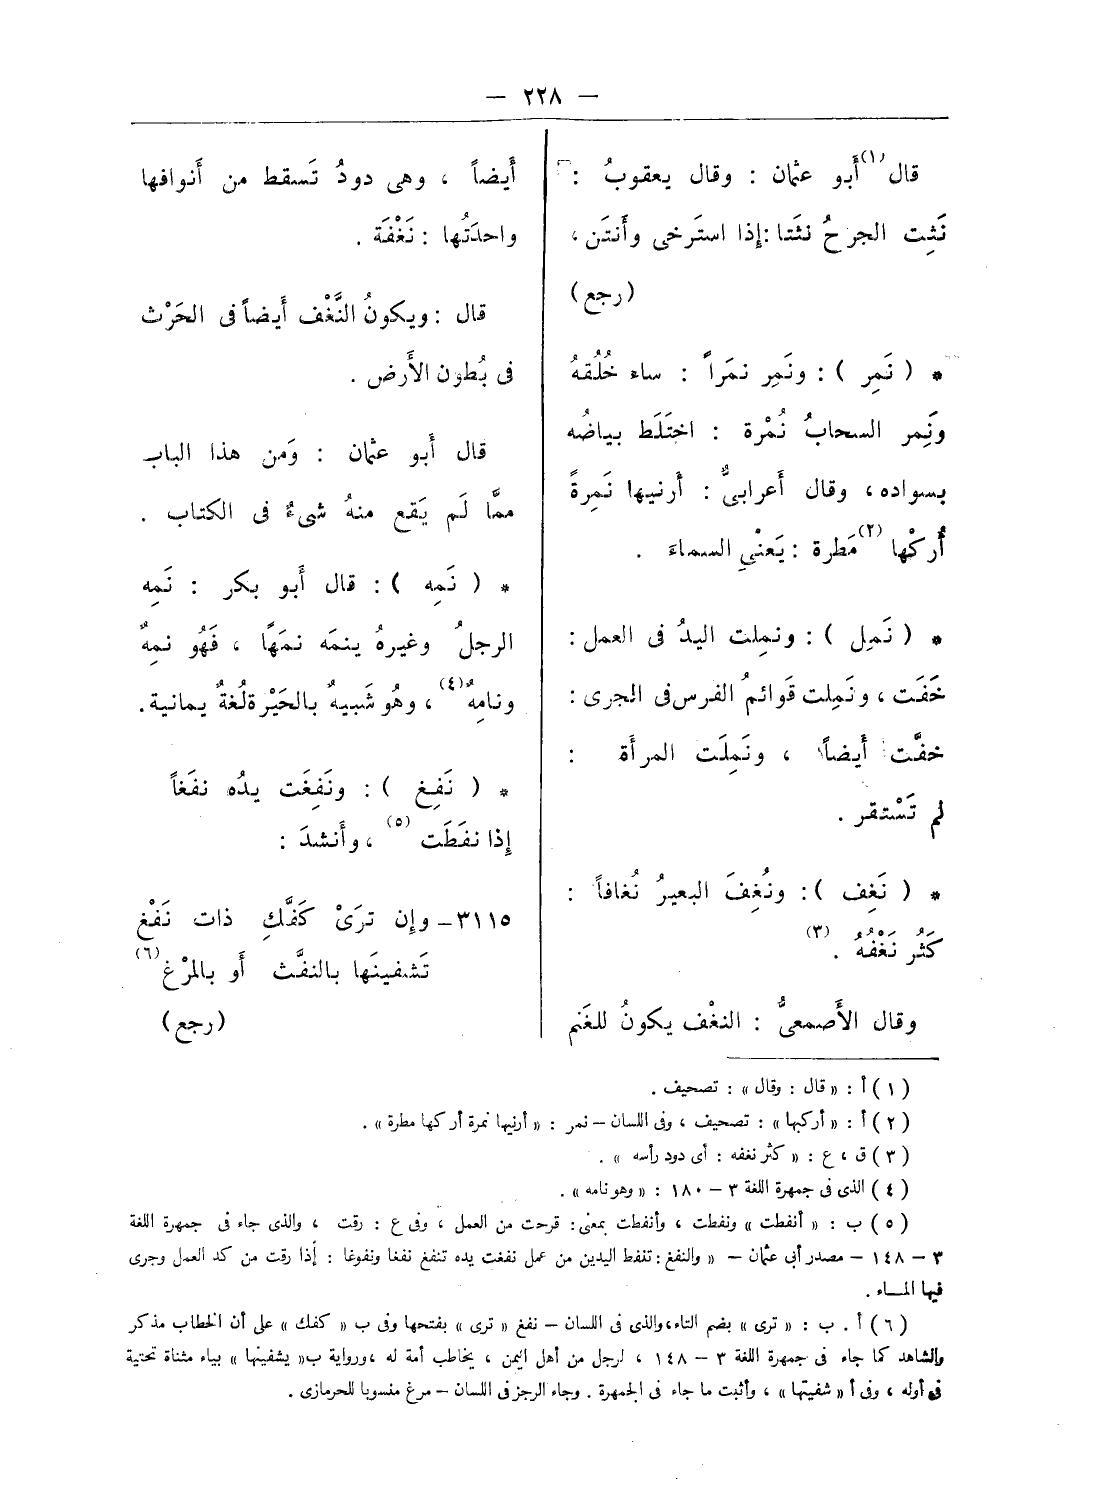 — ٢٢٨ —
قال (١) أَبو عثمان : وقال يعقوبُ :
نَثِت الجرحُ نثَتا : إذا استَرخى وأَنتَن ،
(رجع)
* ( نَمِر ) : ونَمِر نمَراً : ساء خُلُقهُ
ونَمِر السحابُ نُمْرة : اختَلَط بياضُه
بسواده ، وقال أَعرابىٌّ : أَرنيها نَمِرةً
أُركْها (٢) مَطرة : يَعنْىِ السماءَ .
* ( نَمِل ) : ونمِلت اليدُ فى العمل :
خَفَت ، ونَمِلت قَوائمُ الفرس فى الجرى :
خفَّت أَيضاً ، ونَمِلَت المرأَة :
لم تَسْتقر .
* ( نَغِف ) : ونُغِفَ البعيرُ نُغافاً :
كَثُر نَغْفُهُ (٣) .
وقال الأَصمعىُّ : النغْف يكونُ للغَنم
أَيضاً ، وهى دودُ تَسقط من أَنوافها
واحدَتُها : نَغْفَة .
قال : ويكونُ النَّغْف أَيضاً فى الحَرْث
فى بُطون الأَرض .
قال أَبو عثمان : وَمن هذا الباب
ممَّا لَم يَقع منهُ شىءٌ فى الكتاب .
* ( نَمِه ) : قال أَبو بكر : نَمِه
الرجلُ وغيرهُ ينمَه نمَهًا ، فَهُو نمِهٌ
ونامِهٌ (٤) ، وهُو شَبيهٌ بالحَيْرة لُغةٌ يمانية .
* ( نَفِغ ) : ونَفِغَت يدُه نفَغاً
إذا نفَطَت (٥) ، وأَنشدَ :
٣١١٥ – وإن ترَىْ كَفَّكِ ذات نَفْغ
تَشفينَها بالنفَّث أَو بالمرْغ (٦)
(رجع)
(١) أ : « قال : وقال » : تصحيف .
(٢) أ : « أركبها » : تصحيف ، وفى اللسان – نمر : « أرنيها نمرة أركها مطرة » .
(٣) ق ، ع : « كثر نغفه : أى دود رأسه » .
(٤) الذى فى جمهرة اللغة ٣ – ١٨٠ : « وهو نامه » .
(٥) ب : « أنفطت » ونفطت ، وأنفطت بمعنى : قرحت من العمل ، وفى ع : رقت ، والذى جاء فى جمهرة اللغة
٣ – ١٤٨ – مصدر أبى عثمان – « والنفغ : تنفط اليدين من عمل نفغت يده تنفغ نفغا ونفوغا : إذا رقت من كد العمل وجرى
فيها المــاء .
(٦) أ . ب : « ترى » بضم التاء ، والذى فى اللسان – نفغ « ترى » بفتحها وفى ب « كفك » على أن الخطاب مذكر
والشاهد كما جاء فى جمهرة اللغة ٣ – ١٤٨ ، لرجل من أهل اليمن ، يخاطب أمة له ، ورواية ب « يشفيتها » بياء مثناة تحتية
فى أوله ، وفى أ « شفيتها » ، وأثبت ما جاء فى الجمهرة . وجاء الرجز فى اللسان – مرغ منسوبا للحرمازى .